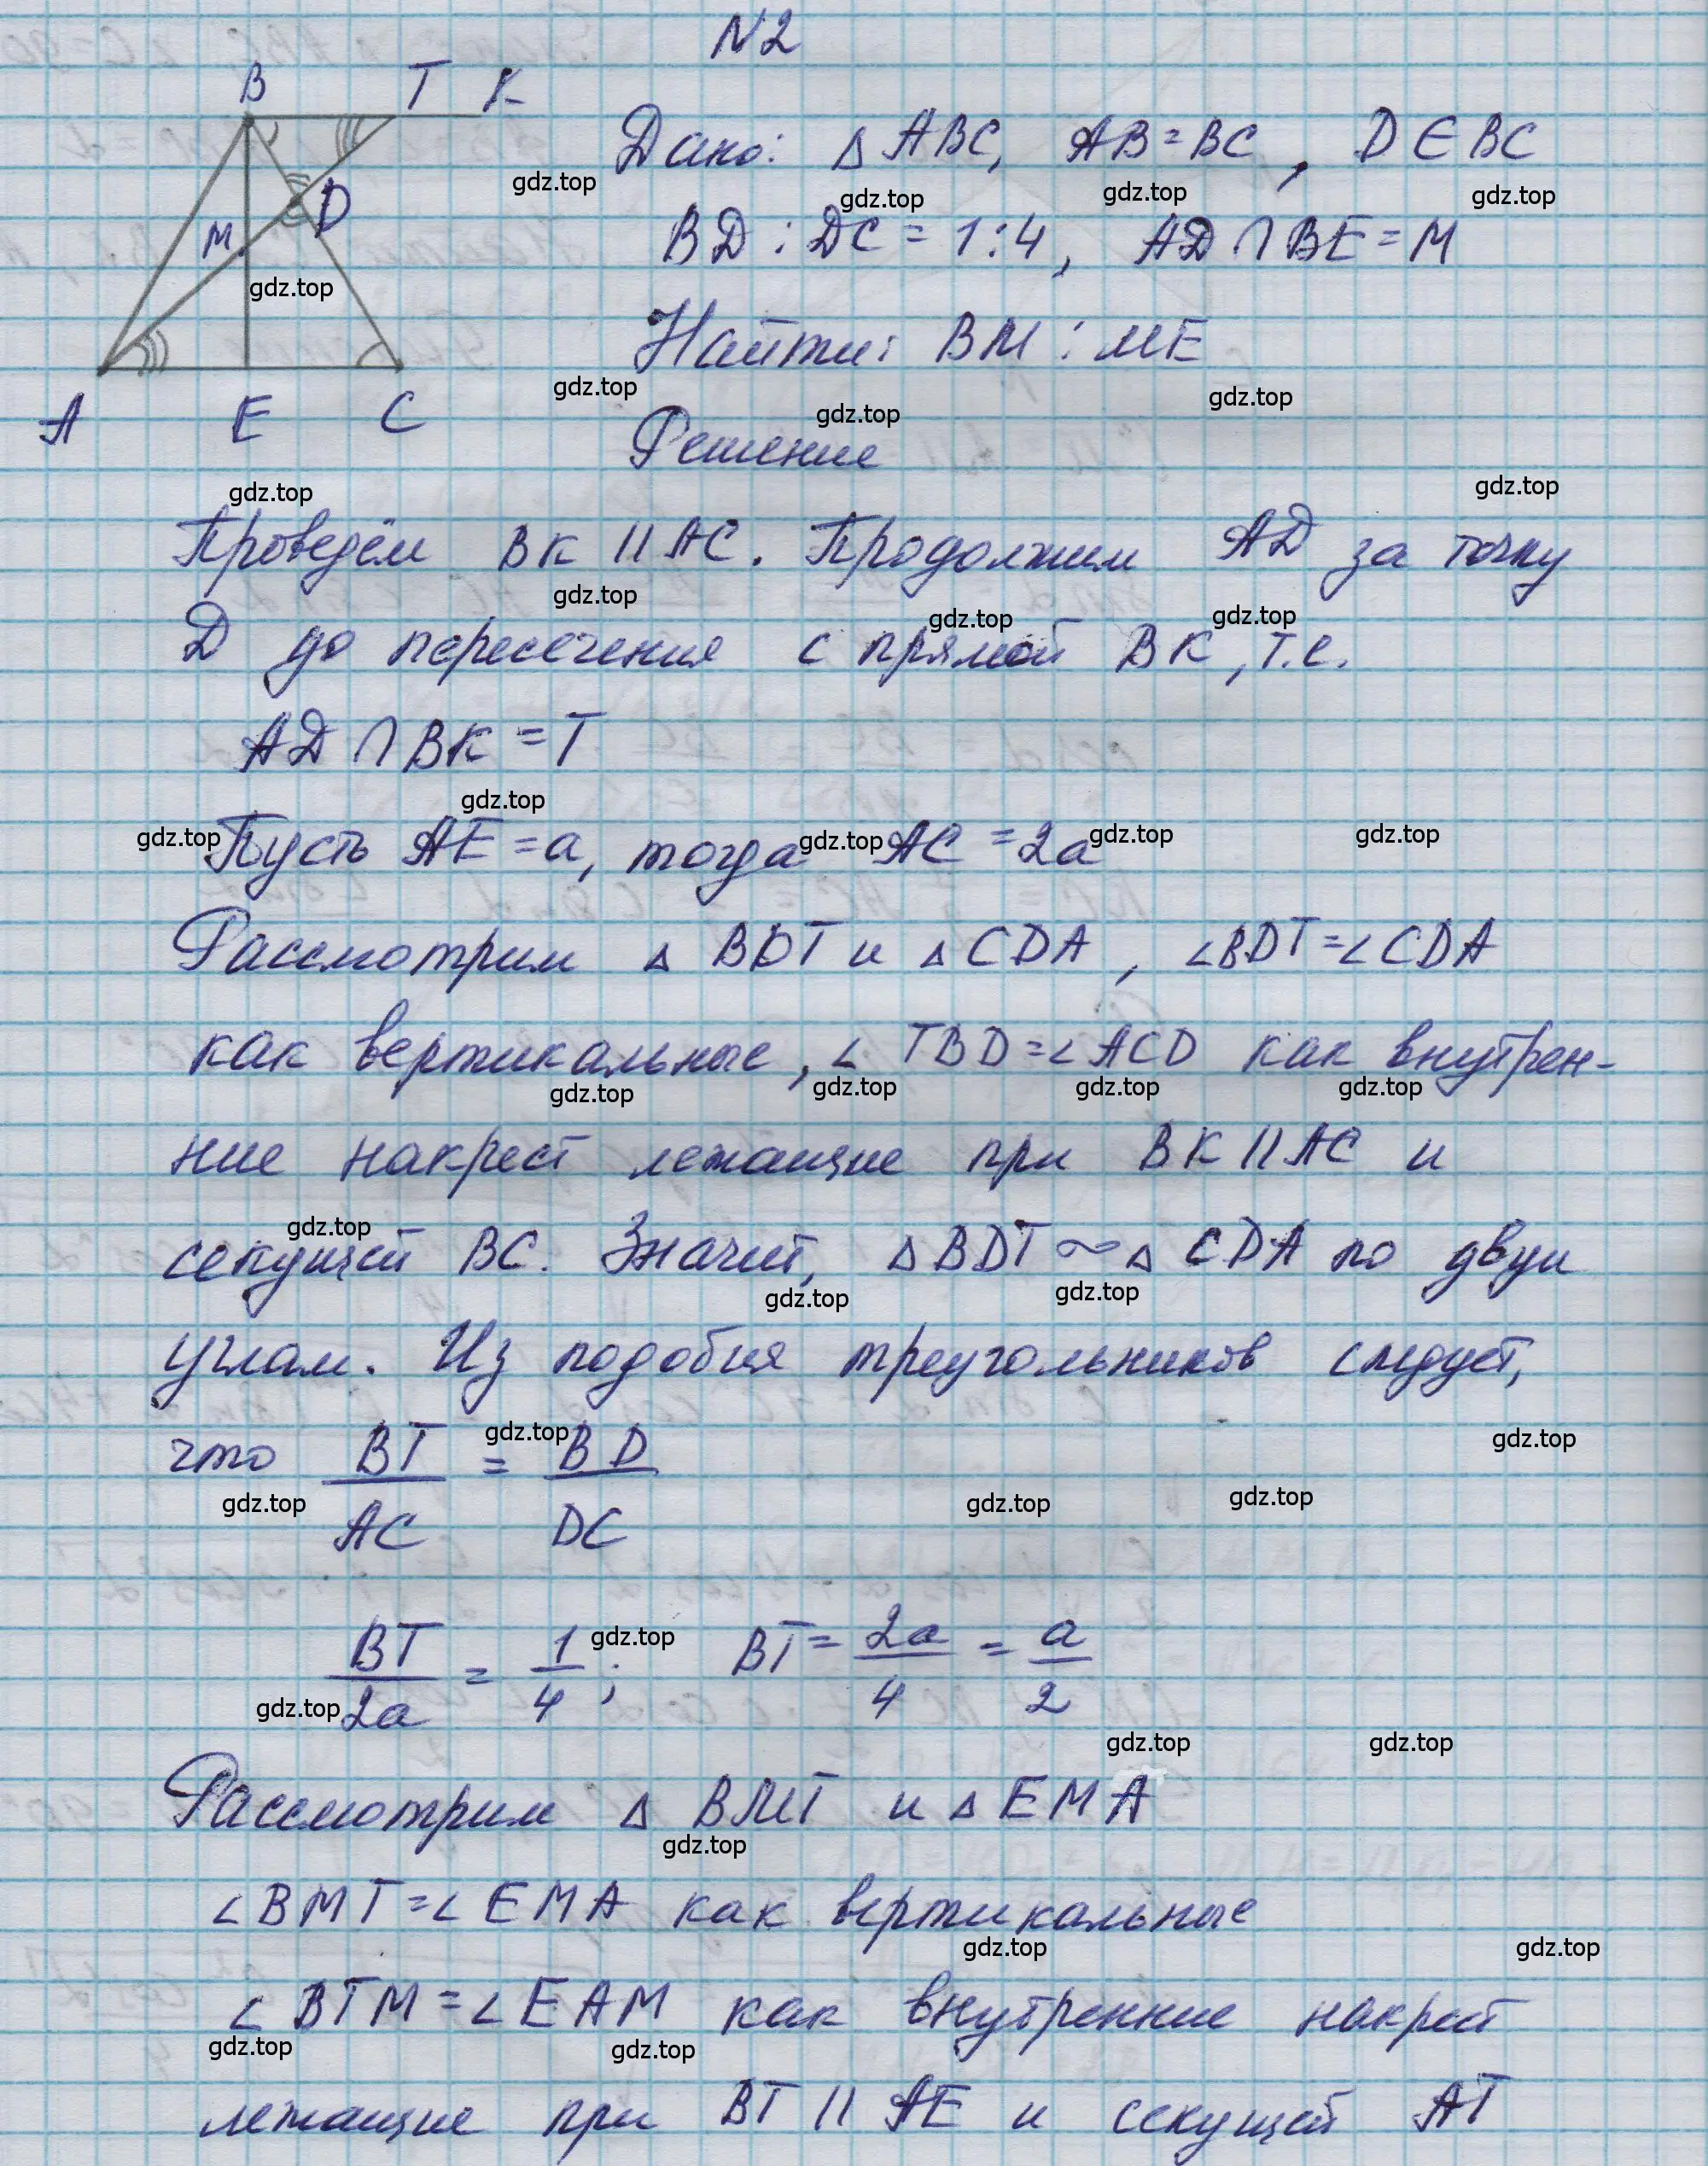 N2
B T K
Дано: △ ABC, AB=BC, D∈BC
M D
BD : DC = 1:4, AD ∩ BE = M
Найти: BM : ME
A E C
Решение
Проведём BK || AC. Продолжим AD за точку
D до пересечения с прямой BK, т.е.
AD ∩ BK = T
Пусть AE = a, тогда AC = 2a
Рассмотрим △ BDT и △ CDA, ∠BDT = ∠CDA
как вертикальные, ∠ TBD = ∠ ACD как внутрен-
ние накрест лежащие при BK || AC и
секущей BC. Значит, △ BDT ~ △ CDA по двум
углам. Из подобия треугольников следует,
что BT/AC = BD/DC
BT/2a = 1/4; BT = 2a/4 = a/2
Рассмотрим △ BMT и △ EMA
∠BMT = ∠ EMA как вертикальные
∠ BTM = ∠ EAM как внутренние накрест
лежащие при BT || AE и секущей AT
gdz.top